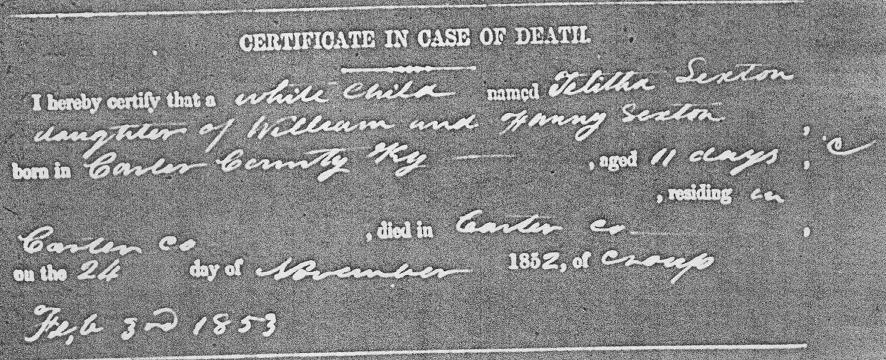 CERTIFICATE IN CASE OF DEATH.
I hereby certify that a white Child named Telitha Sexton
daughter of William and Fanny Sexton ,
born in Carter County Ky , aged 11 days ,
, residing in
Carter co , died in Carter co ,
on the 24 day of November 1852, of croup
Feb 3rd 1853